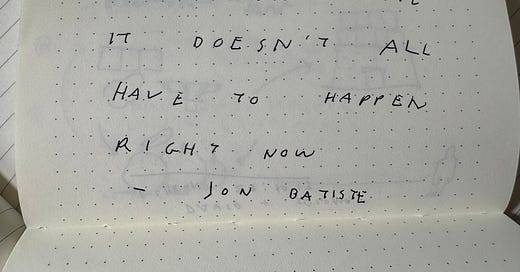 IT DOESN'T ALL
HAVE TO HAPPEN
RIGHT NOW
- JON BATISTE